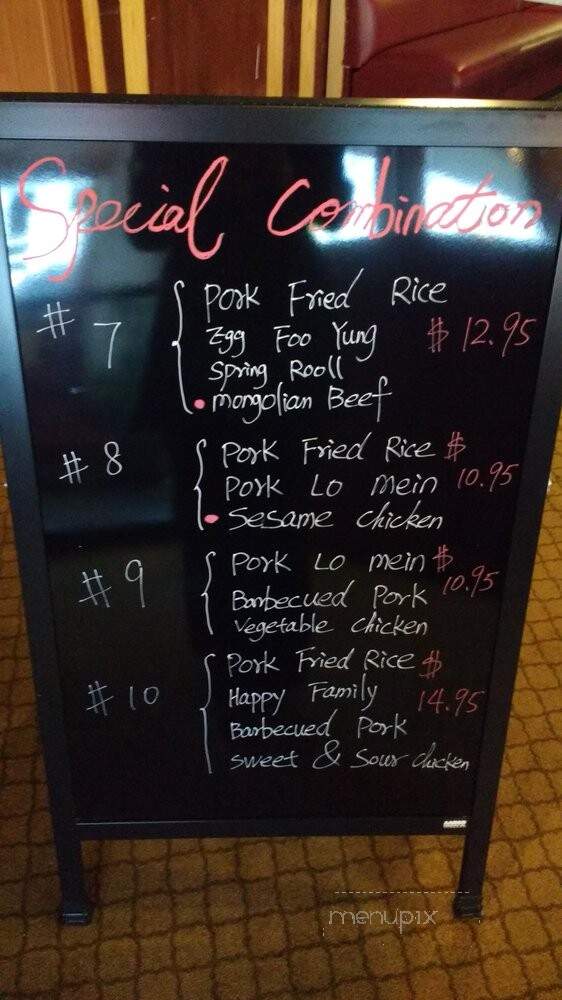 Special Combination
# 7 Pork Fried Rice
Egg Foo Yung $ 12.95
Spring Rooll
mongolian Beef
# 8 Pork Fried Rice $
Pork Lo mein 10.95
Sesame chicken
# 9 Pork Lo mein $
Barbecued Pork 10.95
vegetable chicken
# 10 Pork Fried Rice $
Happy Family 14.95
Barbecued Pork
sweet & Sour chicken
menupix